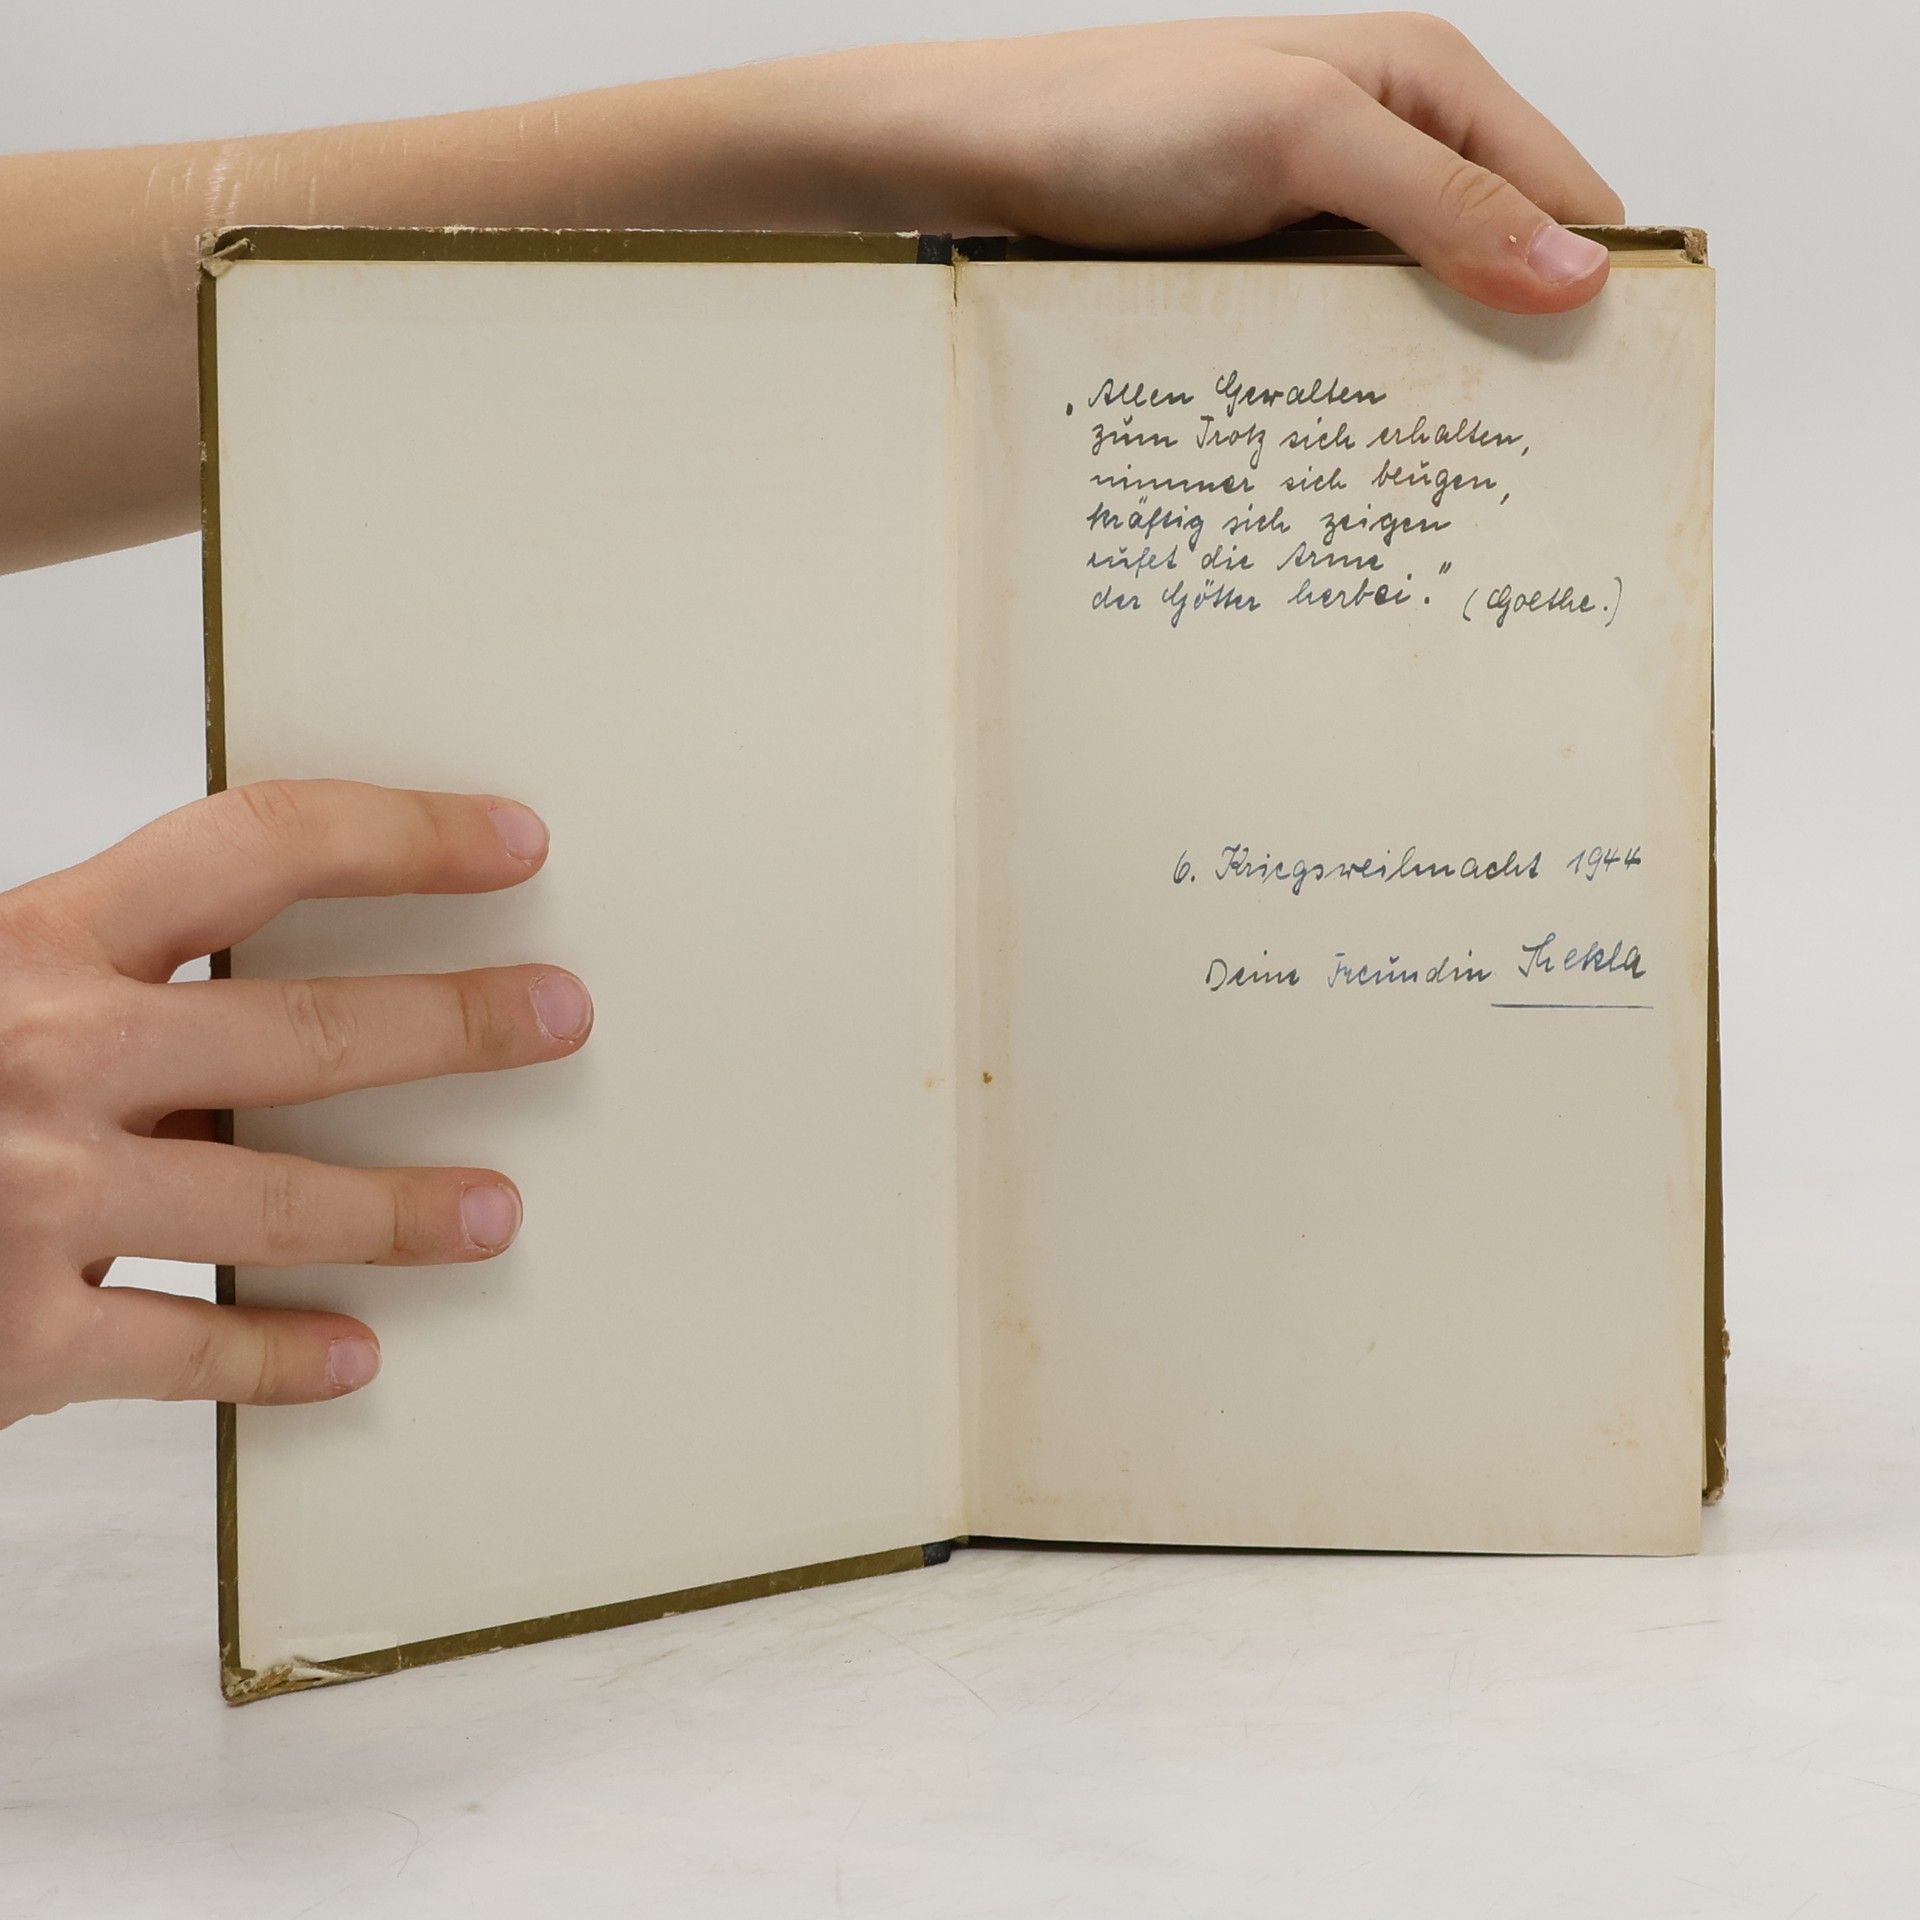 „Allen Gewalten
zum Trotz sich erhalten,
nimmer sich beugen,
kräftig sich zeigen
rufet die Arme
der Götter herbei." (Goethe.)
6. Kriegsweihnacht 1944
Deine Freundin Thekla